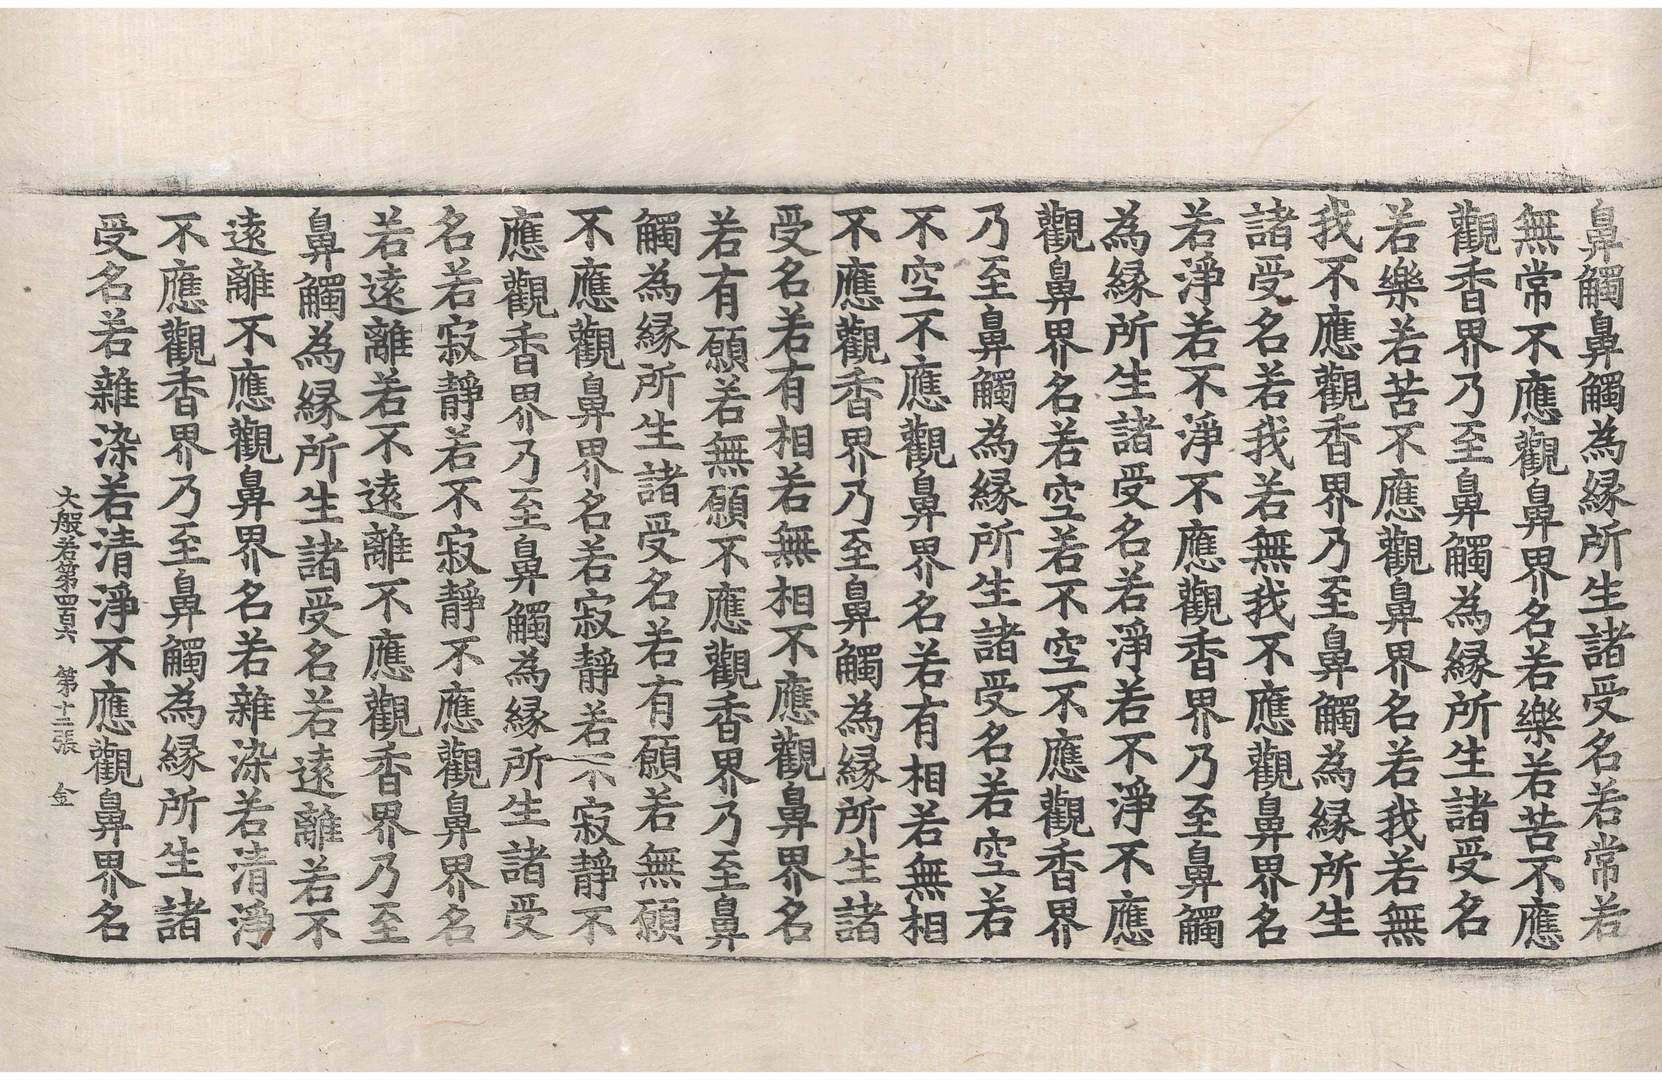 鼻觸鼻觸為緣所生諸受名若常若
無常不應觀鼻界名若樂若苦不應
觀香界乃至鼻觸為緣所生諸受名
若樂若苦不應觀鼻界名若我若無
我不應觀香界乃至鼻觸為緣所生
諸受名若我若無我不應觀鼻界名
若淨若不淨不應觀香界乃至鼻觸
為緣所生諸受名若淨若不淨不應
觀鼻界名若空若不空不應觀香界
乃至鼻觸為緣所生諸受名若空若
不空不應觀鼻界名若有相若無相
不應觀香界乃至鼻觸為緣所生諸
受名若有相若無相不應觀鼻界名
若有願若無願不應觀香界乃至鼻
觸為緣所生諸受名若有願若無願
不應觀鼻界名若寂靜若不寂靜不
應觀香界乃至鼻觸為緣所生諸受
名若寂靜若不寂靜不應觀鼻界名
若遠離若不遠離不應觀香界乃至
鼻觸為緣所生諸受名若遠離若不
遠離不應觀鼻界名若雜染若清淨
不應觀香界乃至鼻觸為緣所生諸
受名若雜染若清淨不應觀鼻界名
大般若第四百六 第十二張 金